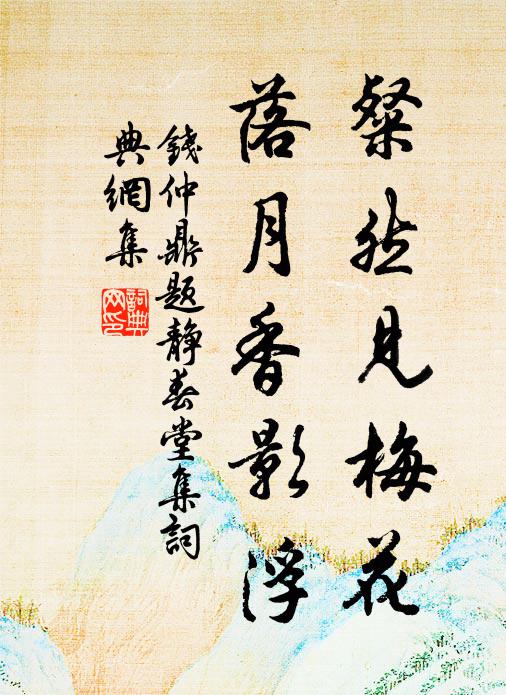 粲然見梅花
落月香影浮
錢仲鼎題靜春堂集詞
典網集
詞典網印